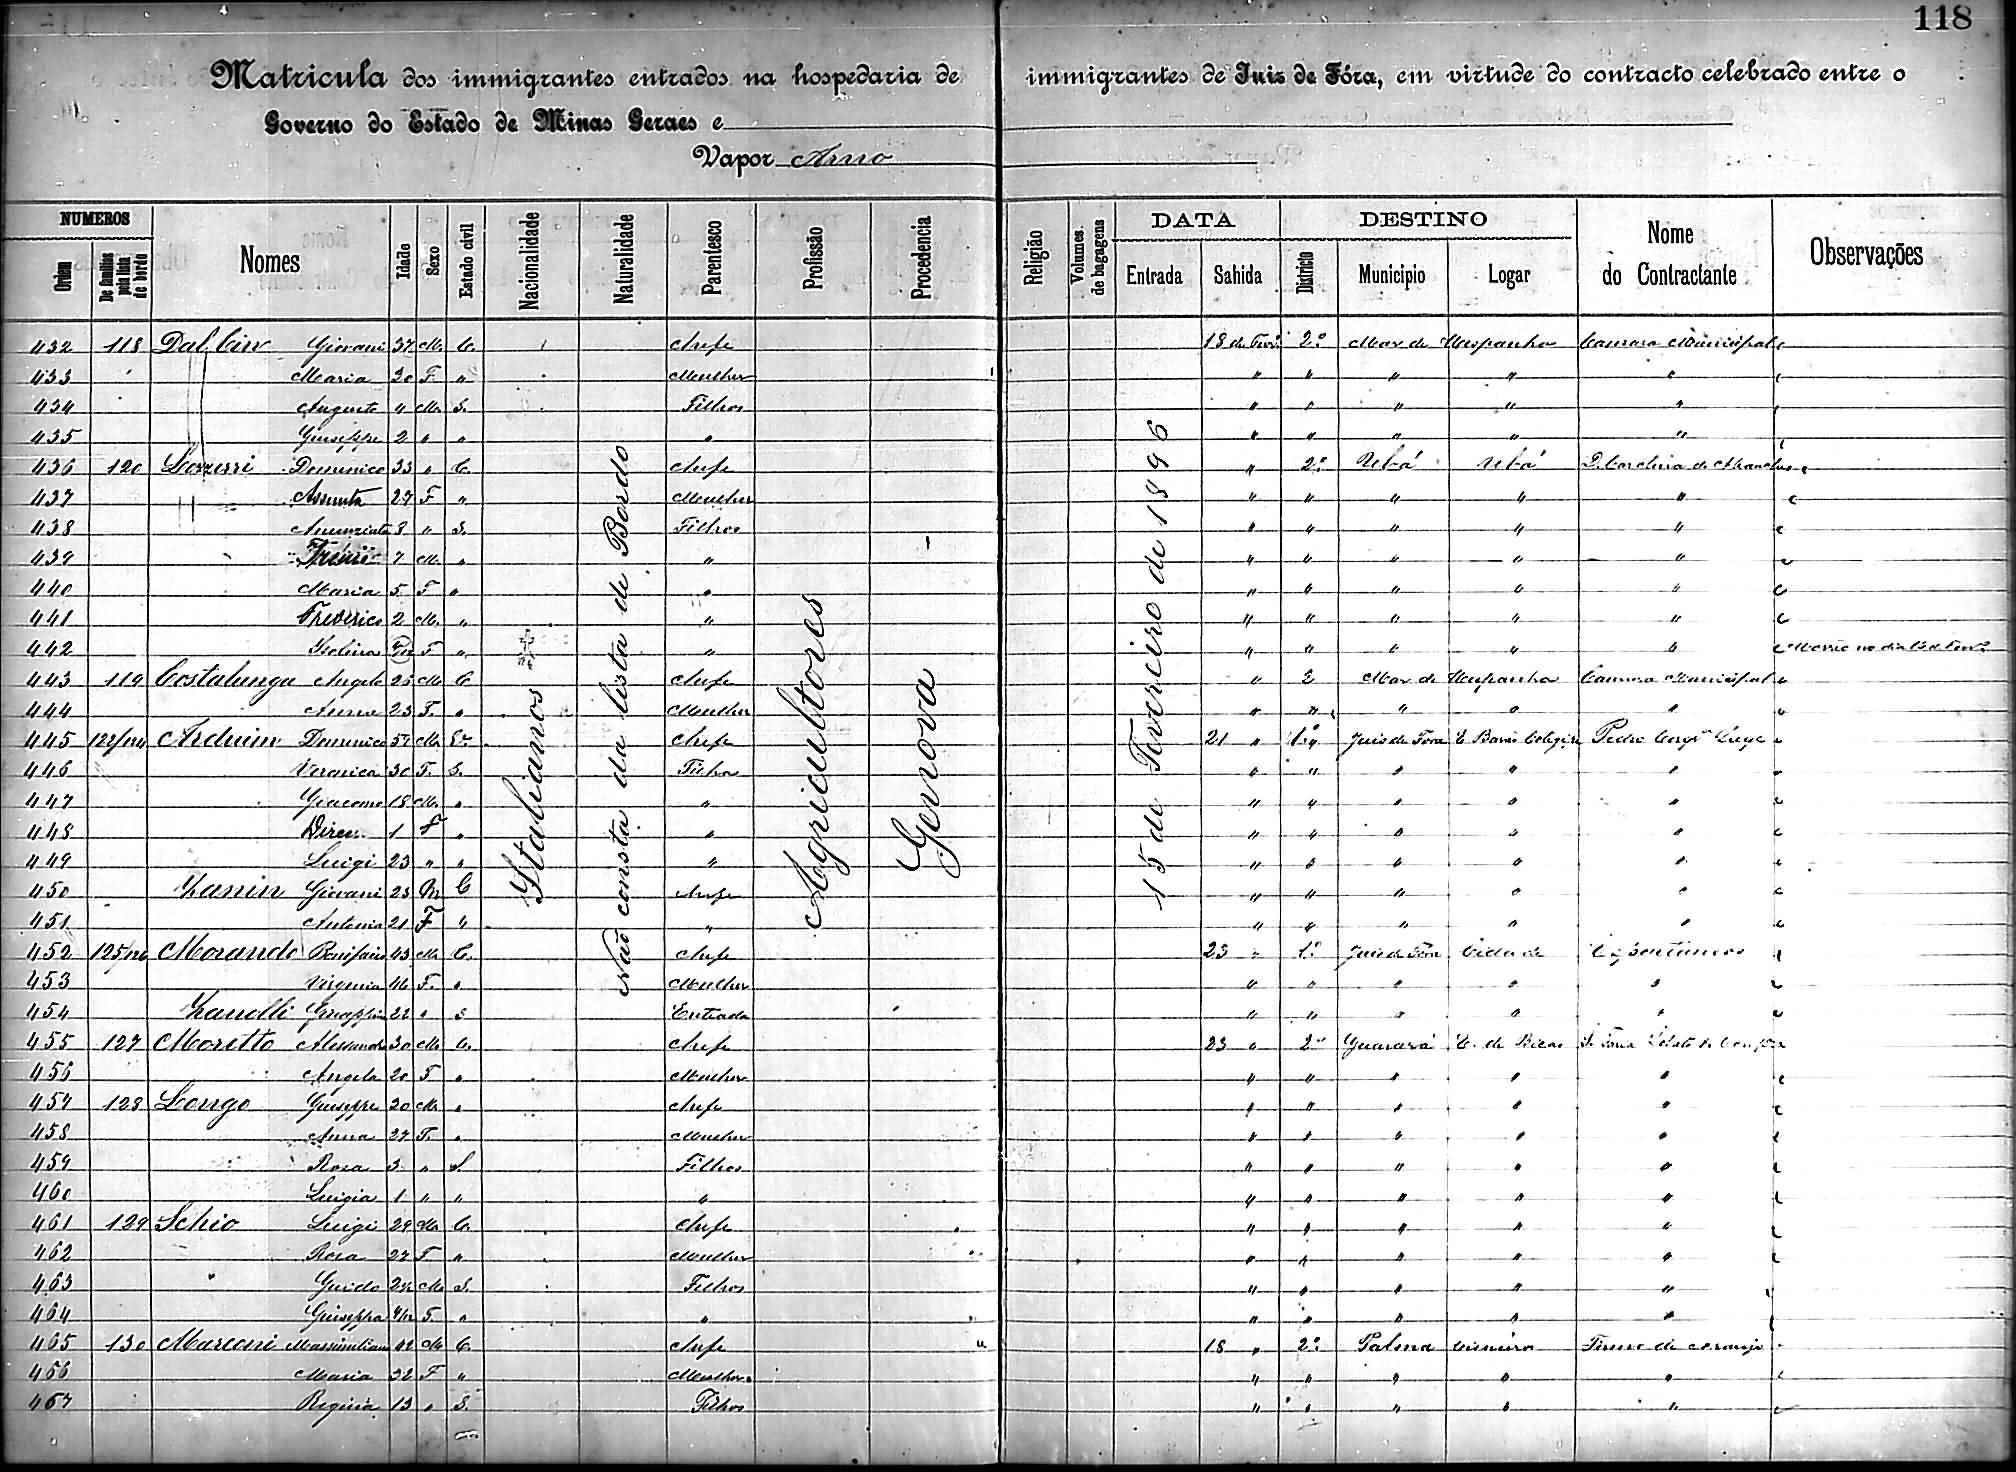 118
Matricula dos immigrantes entrados na hospedaria de immigrantes de Juiz de Fóra, em virtude do contracto celebrado entre o
Governo do Estado de Minas Geraes e
Vapor Arno
NUMEROS
Ordem
De familias pela lista de bordo
Nomes
Idade
Sexo
Estado civil
Nacionalidade
Naturalidade
Parentesco
Profissão
Procedencia
Religião
Volumes de bagagens
DATA
Entrada
Sahida
DESTINO
Districto
Municipio
Logar
Nome do Contractante
Observações
Italianos
Não consta da lista de Bordo
Agricultores
Genova
15 de Fevereiro de 1896
432 118 Dal Cin Giovani 37 M. C. Chefe 18 de Fevº 2º Mar de Hespanha Camara Municipal
433 Maria 30 F. " Mulher " " " " "
434 Augusto 4 M. S. Filhos " " " " "
435 Giuseppe 2 " " " " " " " "
436 120 Domenico 33 " C. Chefe " 2º Ubá Ubá
437 Assunta 27 F " Mulher " " " " "
438 Anunziata 8 " S. Filhos " " " " "
439 7 M. " " " " " " "
440 Maria 5 F " " " " " " "
441 Frederico 2 M. " " " " " " "
442 F " " " " " " "
443 119 Costalunga Angelo 25 M C Chefe " 2 Mar de Hespanha Camara Municipal
444 Anna 23 F. " Mulher " " " " "
445 122/124 Arduim Domenico 57 M Chefe 21 " 1º Juis de Fora Pedro
446 Veronica 30 F. S. Filha " " " " "
447 Giacomo 18 M. " " " " " " "
448 1 F " " " " " " "
449 Luigi 23 " " " " " " " "
450 Zanin Giovani 23 M C Chefe " " " " "
451 Antonia 21 F " " " " " " "
452 125/126 Morando Bonifacio 43 M C. Chefe 23 " 1º Juis de Fora Cidade Espontaneos
453 Virginia 46 F. " Mulher " " " " "
454 Zanolli 22 " S Entiada " " " " "
455 127 Moretto Alessandro 30 M C. Chefe 23 " 2º Guarará E. de Bicas
456 Angela 20 F " Mulher " " " " "
457 128 Longo Giuseppe 30 M " Chefe " " " " "
458 Anna 27 F. " Mulher " " " " "
459 Rosa 3 " S. Filhos " " " " "
460 Luigia 1 " " " " " " " "
461 129 Schio Luigi 29 M C. Chefe " " " " "
462 Rosa 27 F " Mulher " " " " "
463 Guido M S. Filhos " " " " "
464 Giuseppa F. " " " " " " "
465 130 Marconi Massimiliano 42 M C. Chefe 18 " 2º Palma Cisneiros Firmo de Araujo
466 Maria 32 F " Mulher " " " " "
467 13 " S. Filhos " " " " "